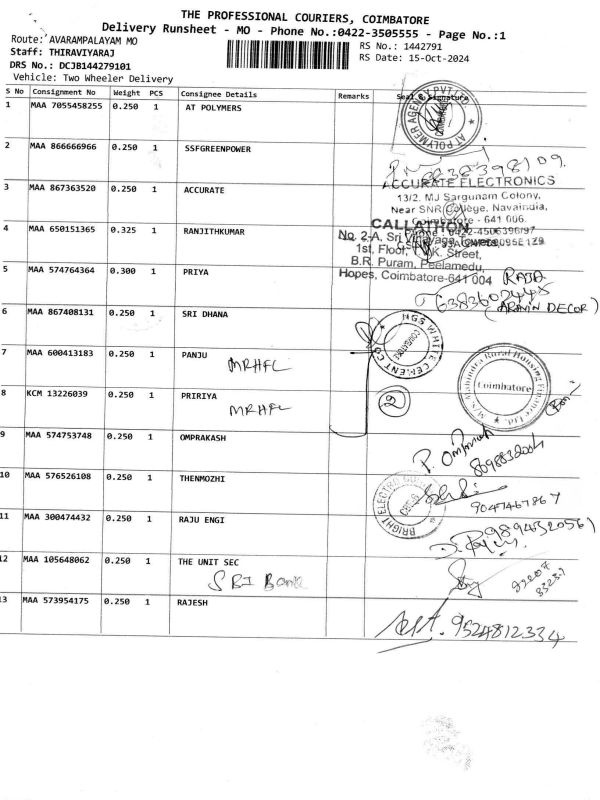 THE PROFESSIONAL COURIERS, COIMBATORE
Delivery Runsheet - MO - Phone No.:0422-3505555 - Page No.:1
Route: AVARAMPALAYAM MO
Staff: THIRAVIYARAJ
DRS No.: DCJB144279101
Vehicle: Two Wheeler Delivery
RS No.: 1442791
RS Date: 15-Oct-2024
S No Consignment No Weight PCS Consignee Details Remarks Seal & Signature
1 MAA 7055458255 0.250 1 AT POLYMERS
AT POLYMER AGENCY PVT LTD
2 MAA 866666966 0.250 1 SSFGREENPOWER
3 MAA 867363520 0.250 1 ACCURATE
ACCURATE ELECTRONICS
13/2. MJ Sargunam Colony,
Near SNR College, Navaindia,
Coimbatore - 641 006.
4 MAA 650151365 0.325 1 RANJITHKUMAR
CALLATHON
No. 2-A, Sri
1st, Floor, K. Street,
B.R. Puram, Peelamedu,
Hopes, Coimbatore-641 004
5 MAA 574764364 0.300 1 PRIYA
RAJA
(ARAVIN DECOR)
6 MAA 867408131 0.250 1 SRI DHANA
NGS WHITE CEMENT CO
7 MAA 600413183 1 0.250 PANJU
MRHFL
8 KCM 13226039 0.250 1 PRIRIYA
MRHFL
2
M/s Mahindra Rural Housing Finance Ltd.
Coimbatore
9 MAA 574753748 0.250 1 OMPRAKASH
P. Omprakash
10 MAA 576526108 0.250 1 THENMOZHI
BRIGHT ELECTRO
9047467867
11 MAA 300474432 0.250 1 RAJU ENGI
9894320561
12 MAA 105648062 0.250 1 THE UNIT SEC
SBI Bank
13 MAA 573954175 0.250 1 RAJESH
9524812334